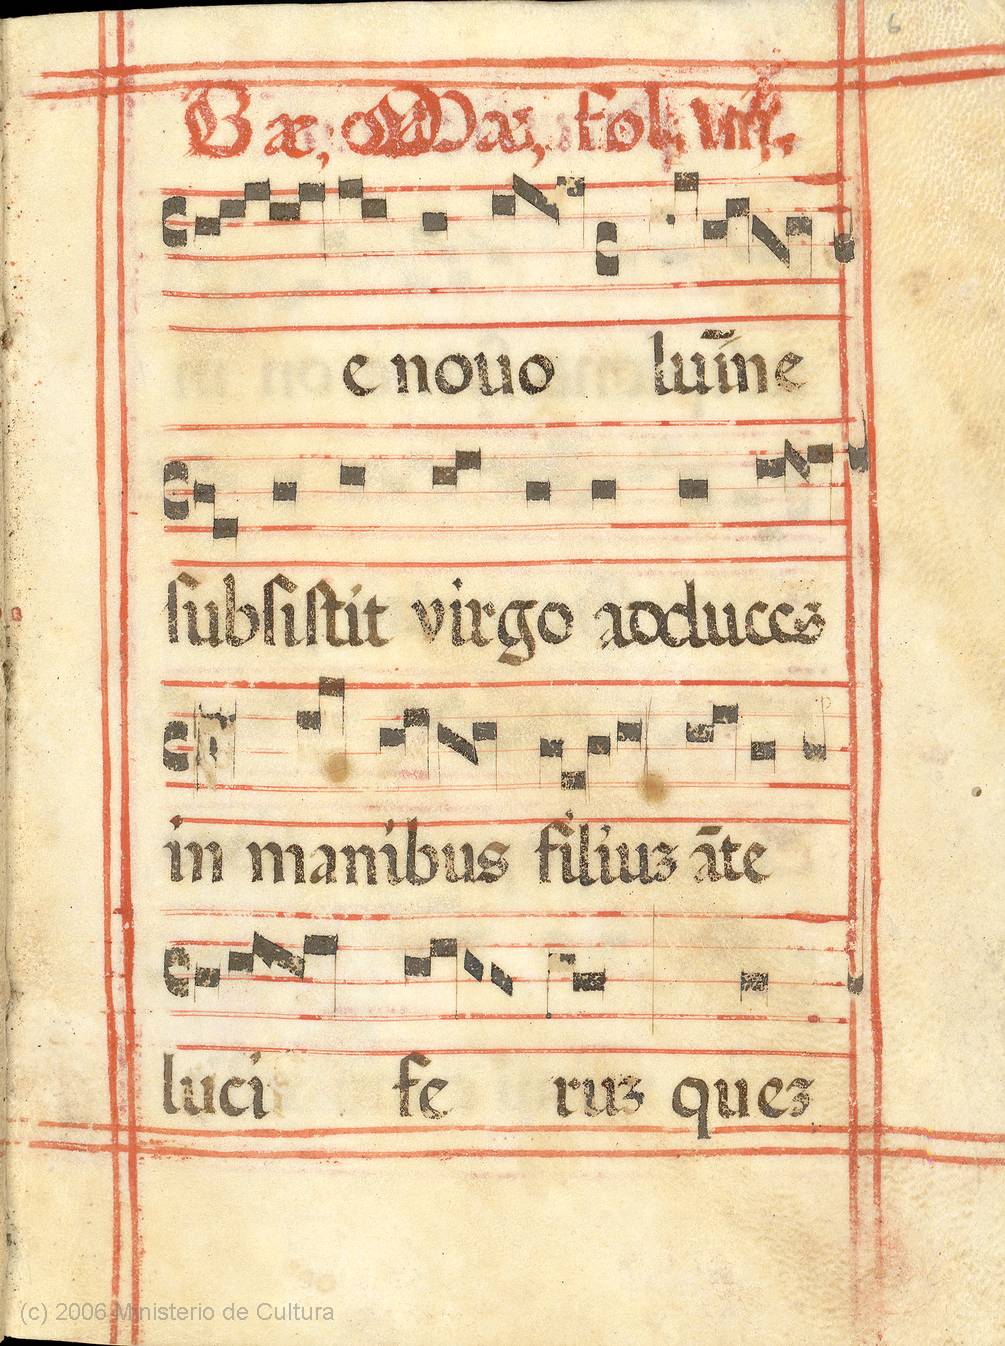 6
Bæ, Mæ, fol. iiii.
e nouo luı̄ne
subsistit virgo adduces
in manibus filiuz āte
luci fe ruz quez
(c) 2006 Ministerio de Cultura